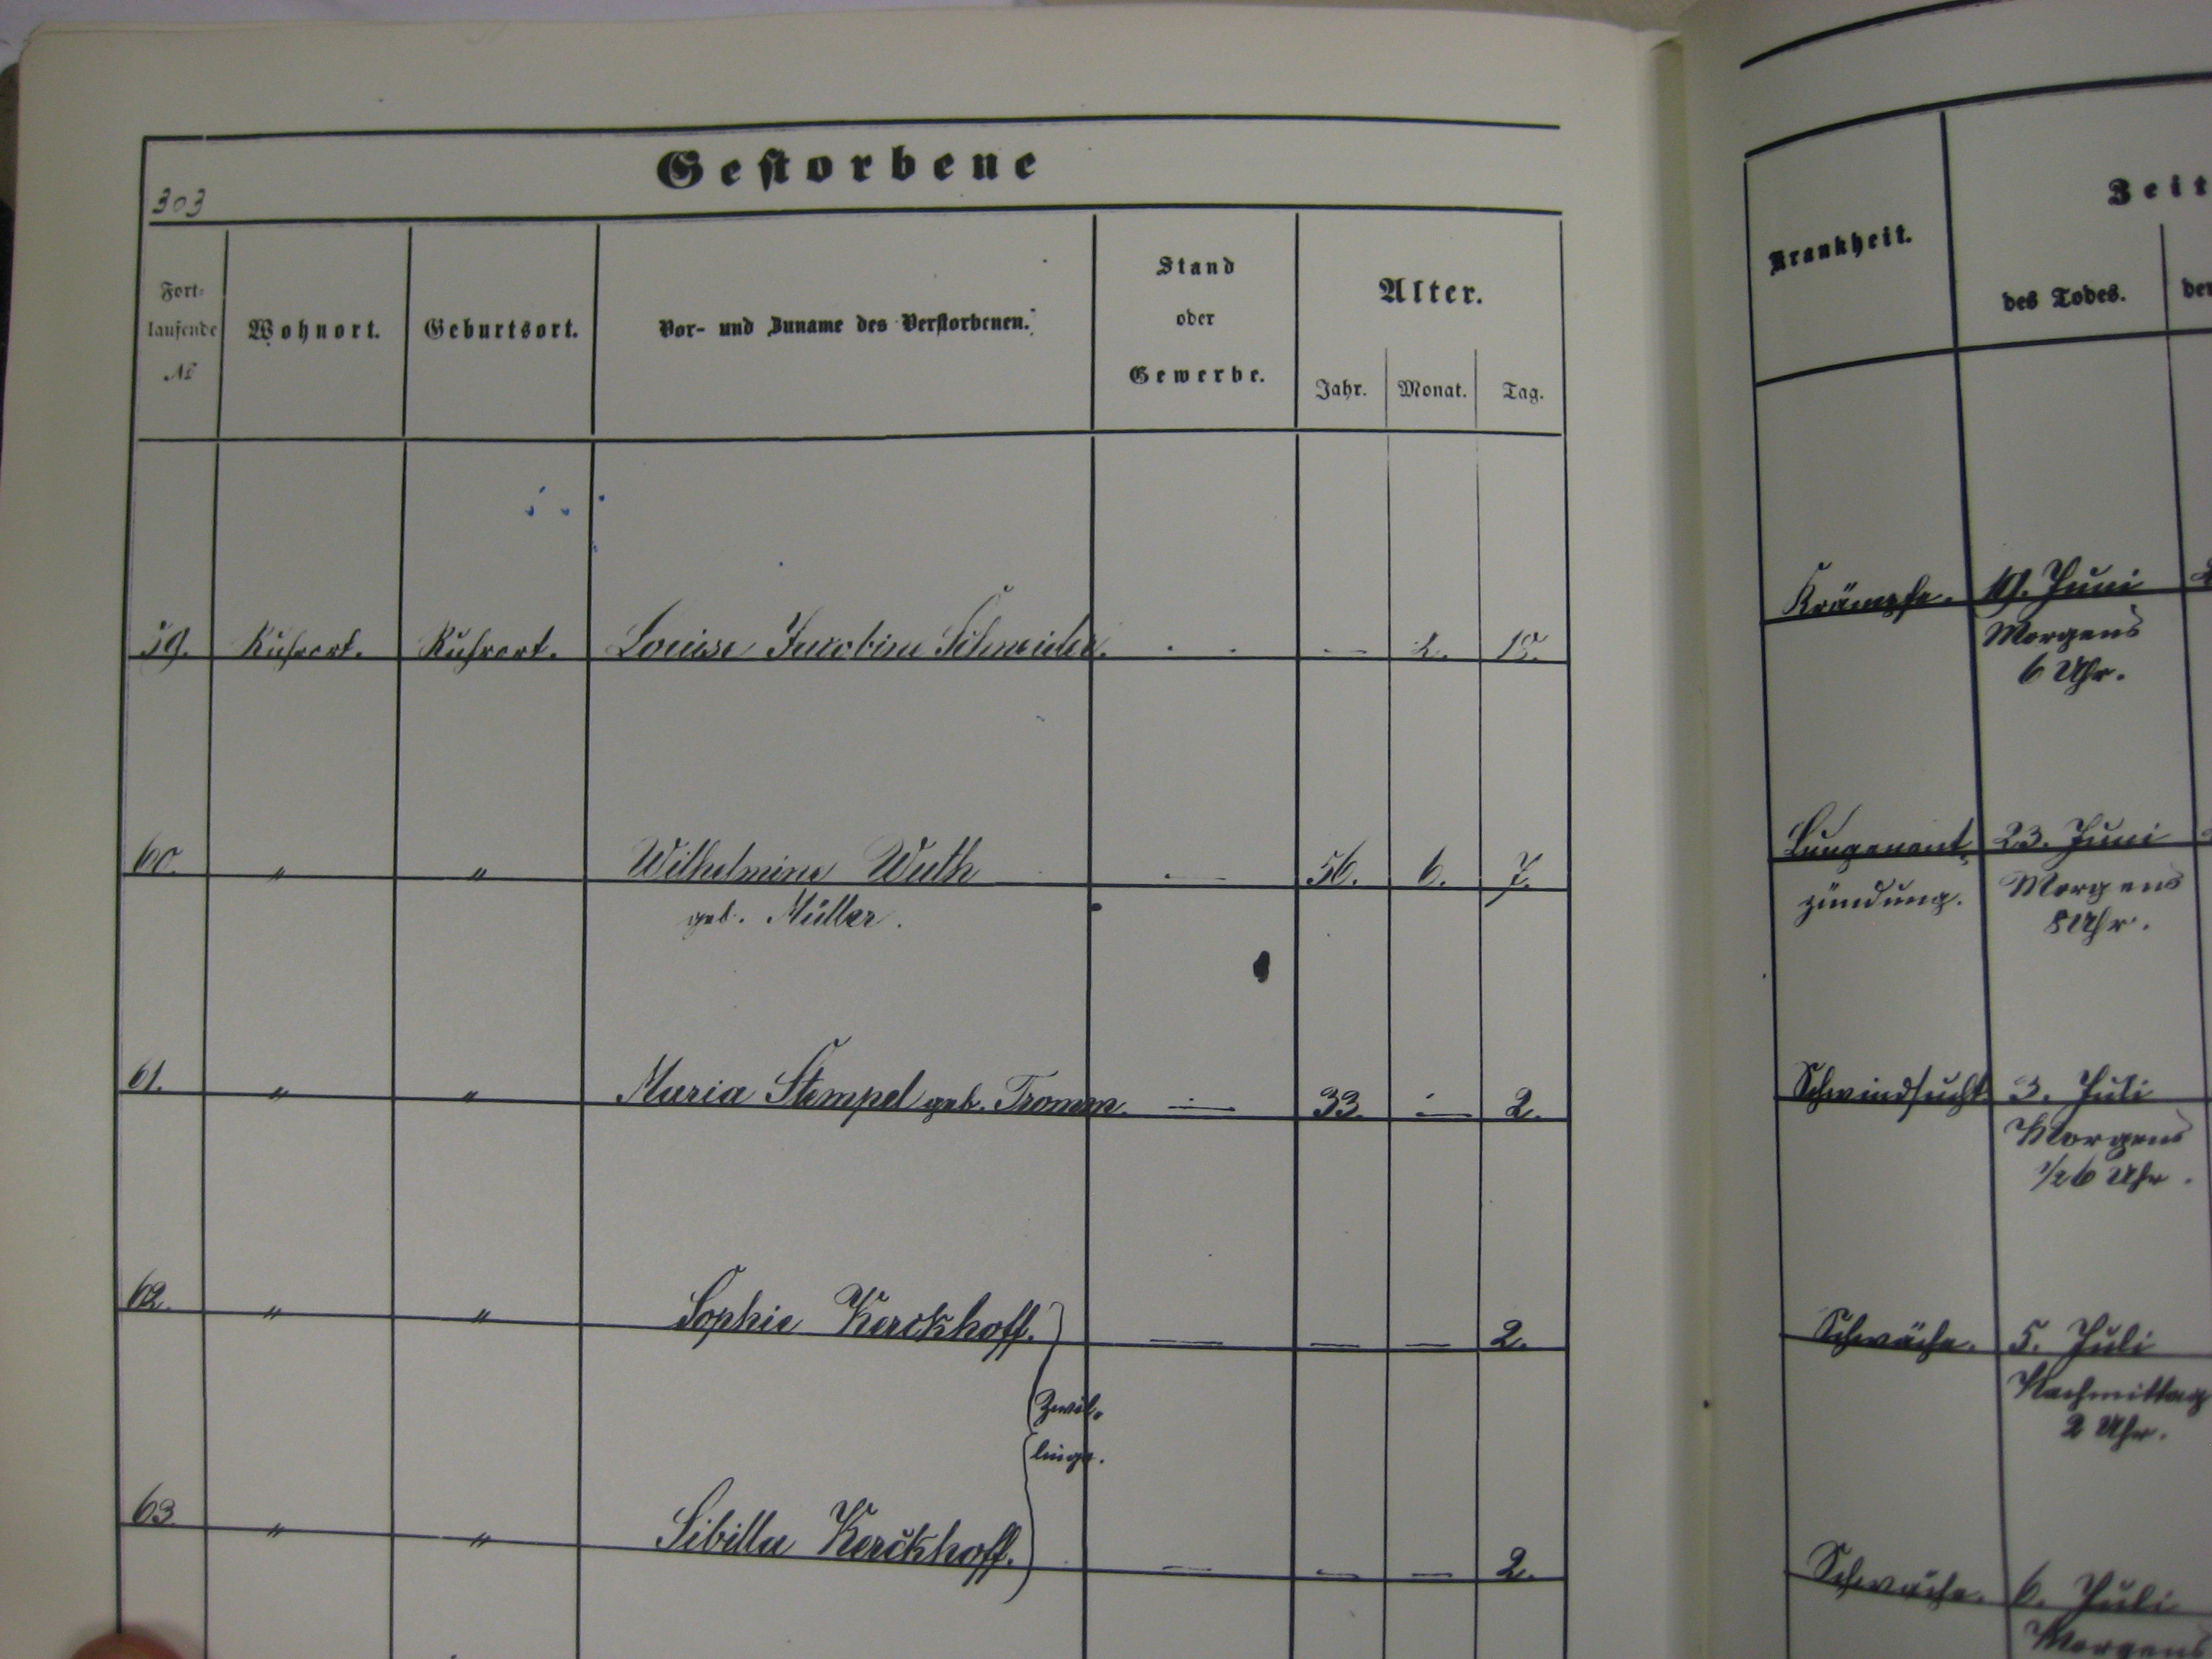 Gestorbene
303
Fort-
laufende
№
Wohnort.
Geburtsort.
Vor- und Zuname des Verstorbenen.
Stand
oder
Gewerbe.
Alter.
Jahr. Monat. Tag.
Krankheit.
Zeit
des Todes.
59. Ruhrort. Ruhrort. Louise Jacobine Schneider. — 2. 15.
Krämpfe. 19. Juni
Morgens
6 Uhr.
60. " " Wilhelmine Wuth — 56. 6. 7.
geb. Müller.
Lungenent- 23. Juni
zündung. Morgens
8 Uhr.
61. " " Maria Stempel geb. Tromm. — 33. — 2.
Schwindsucht 3. Juli
Morgens
1/2 6 Uhr.
62. " " Sophie Kerckhoff. — — — 2.
Zwil-
linge.
Schwäche. 5. Juli
Nachmittag
2 Uhr.
63. " " Sibilla Kerckhoff. — — — 2.
Schwäche. 6. Juli
Morgens